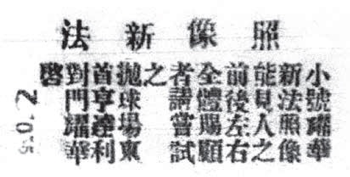 照像新法
小號燿華
新法照像
能見人之
前後左右
全體賜顧
者請嘗試
之
拋球場東
首亨達利
對門燿華
啓